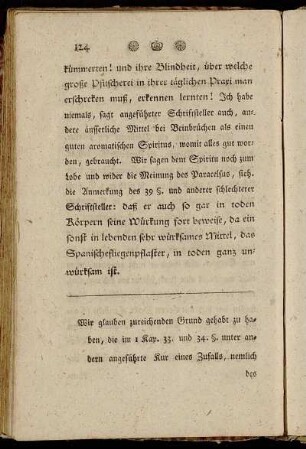 124
kümmerten! und ihre Blindheit, über welche
große Pfuscherei in ihrer täglichen Praxi man
erschreken muß, erkennen lernten! Ich habe
niemals, sagt angeführter Schriftsteller auch, an-
dere äusserliche Mittel bei Beinbrüchen als einen
guten aromatischen Spiritus, womit alles gut wor-
den, gebraucht. Wir sagen dem Spiritus noch zum
Lobe und wider die Meinung des Paracelsus, sieh.
die Anmerkung des 39 §. und anderer schlechterer
Schriftsteller: daß er auch so gar in toden
Körpern seine Würkung fort beweise, da ein
sonst in lebenden sehr würksames Mittel, das
Spanischefliegenpflaster, in toden ganz un-
würksam ist.
Wir glauben zureichenden Grund gehabt zu ha-
ben, die im 1 Kap. 33. und 34. §. unter an-
dern angeführte Kur eines Zufalls, nemlich
des